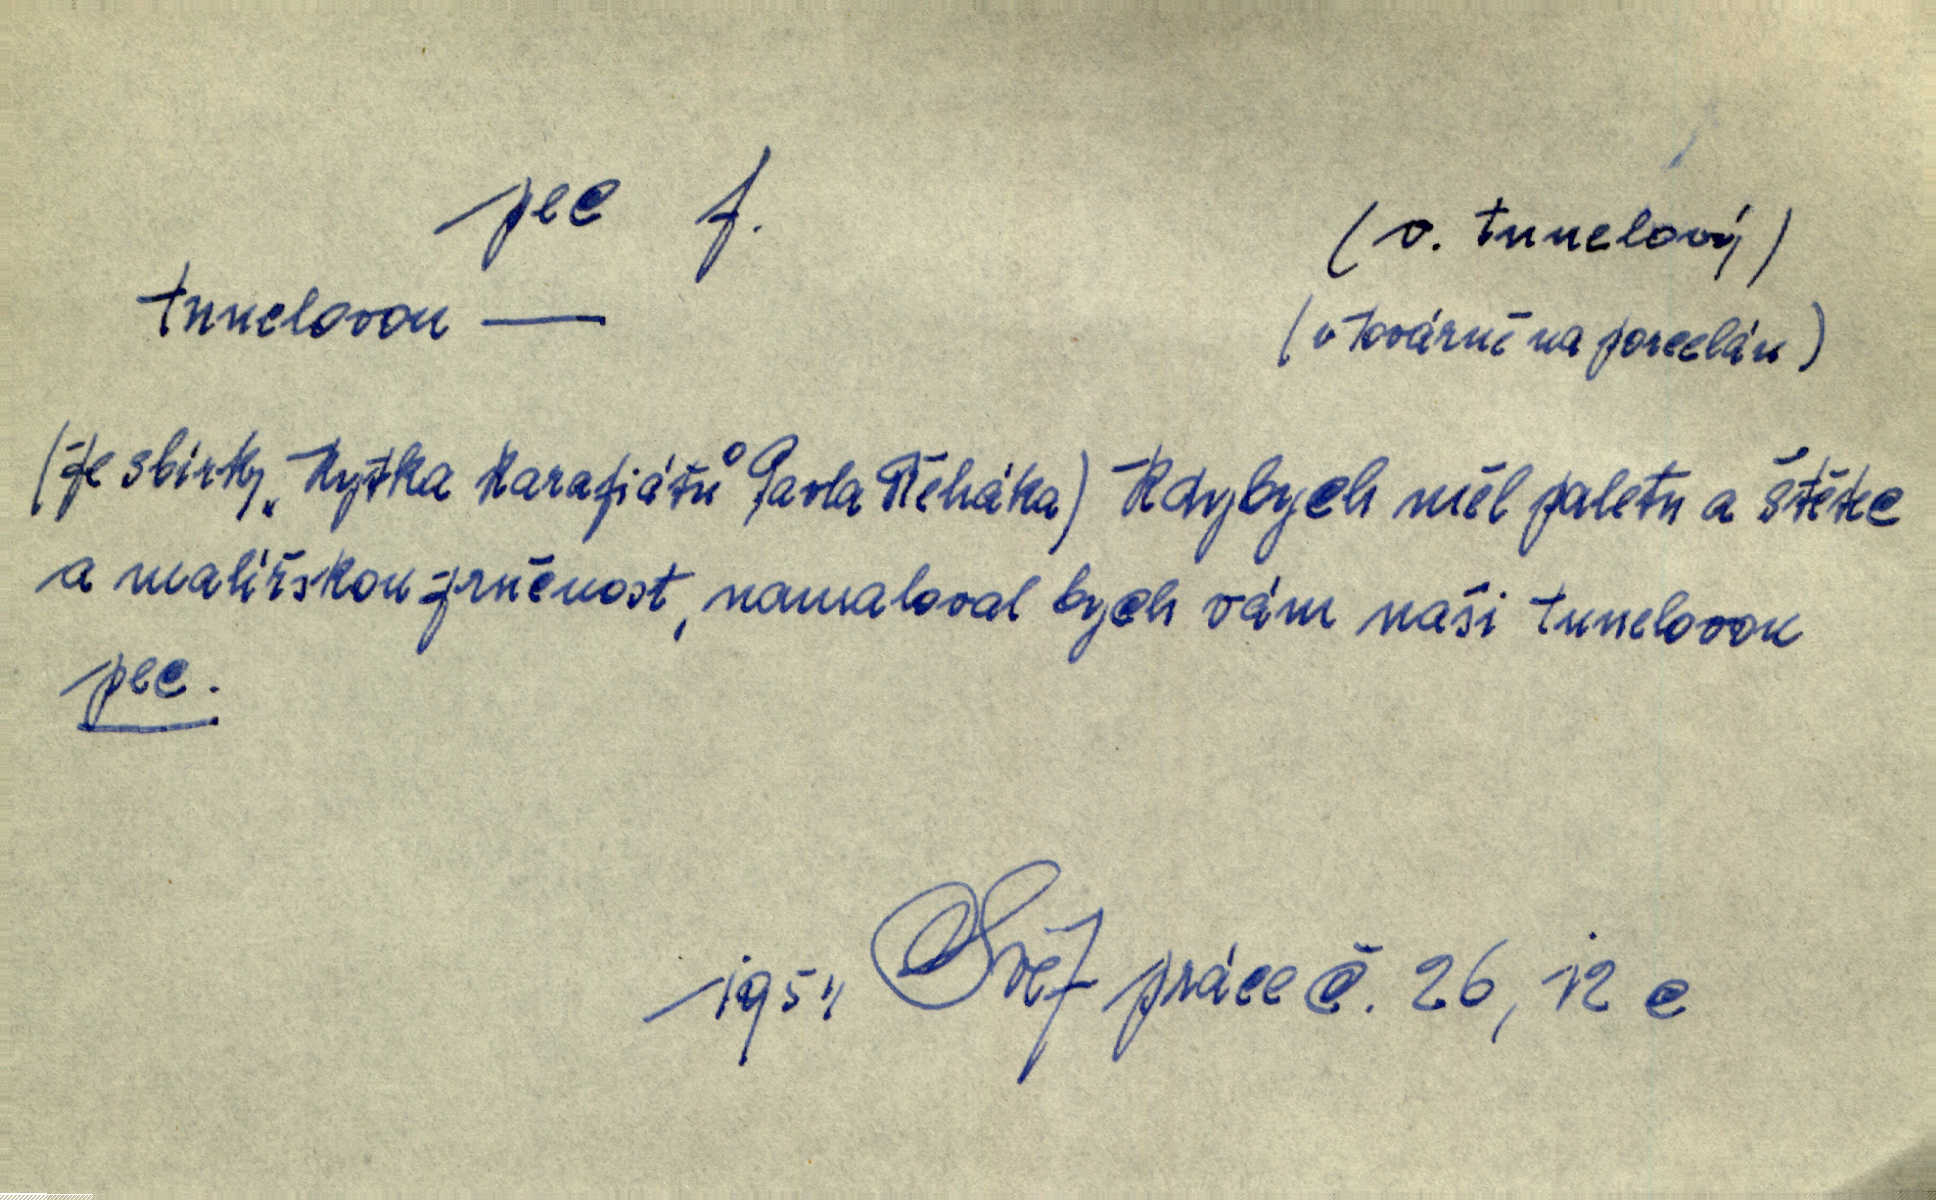 pec f.
(v. tunelový)
tunelovou —
(v továrně na porcelán)
(Ze sbírky „Kytka karafiátů Pavla Řeháka) Kdybych měl paletu a štětce
a malířskou zručnost, namaloval bych vám naši tunelovou
pec.
1954 Svět práce č. 26, 12 c